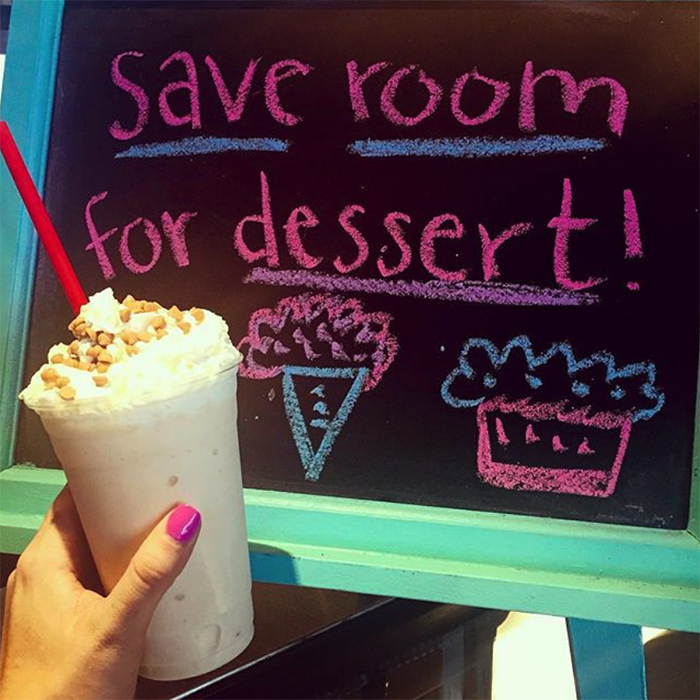 save room
for dessert!